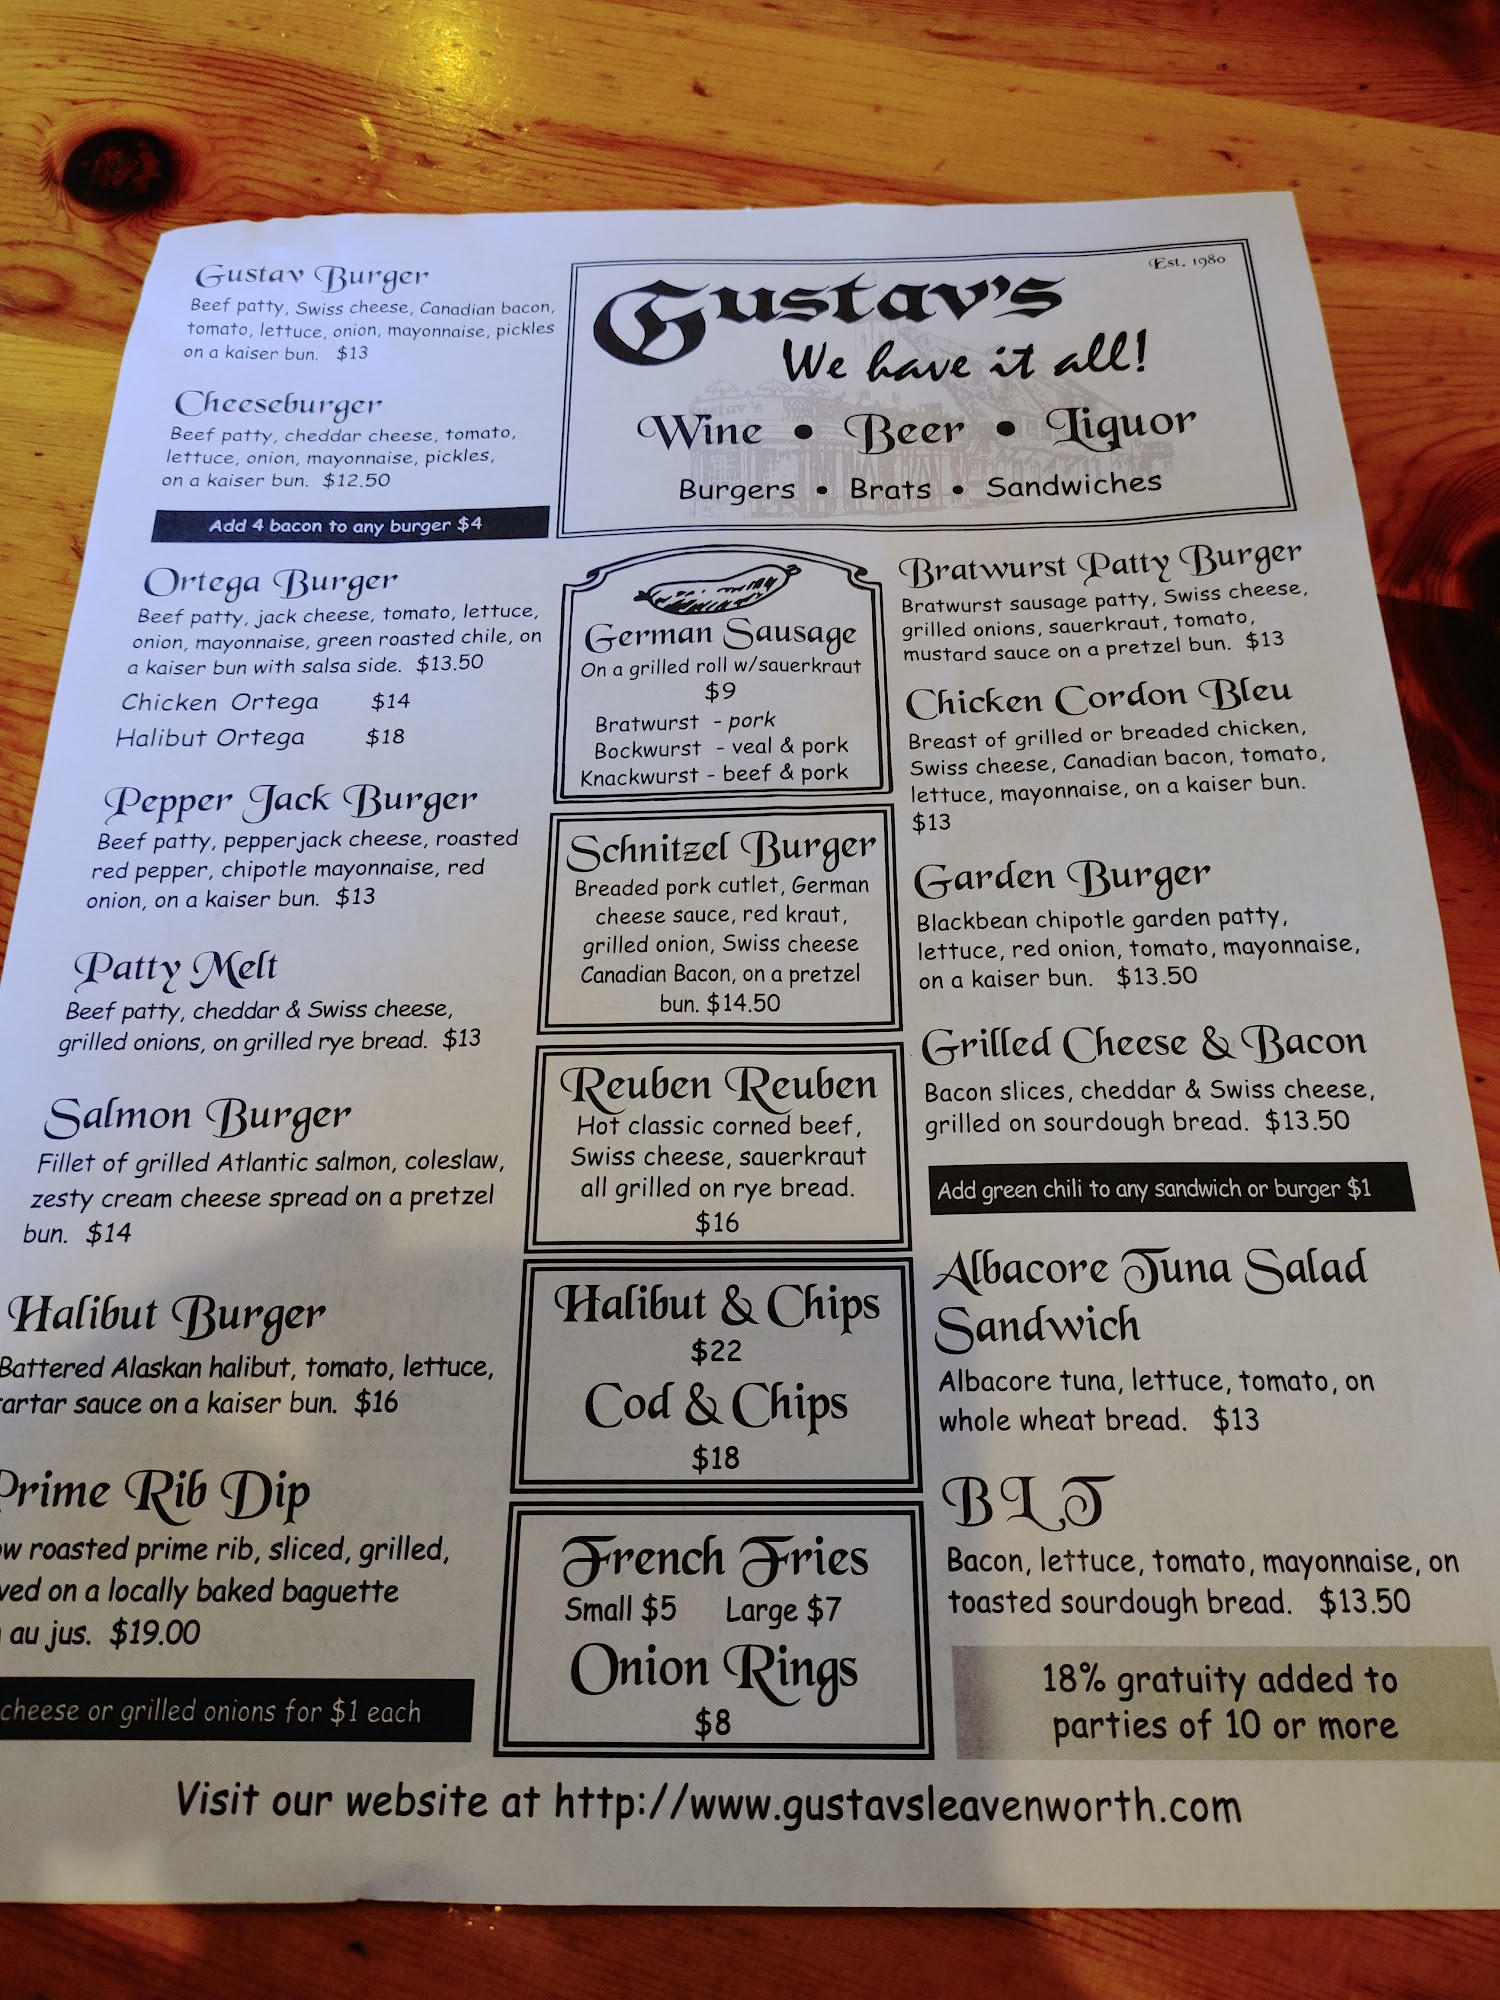 Gustav Burger
Beef patty, Swiss cheese, Canadian bacon,
tomato, lettuce, onion, mayonnaise, pickles
on a kaiser bun. $13
Cheeseburger
Beef patty, cheddar cheese, tomato,
lettuce, onion, mayonnaise, pickles,
on a kaiser bun. $12.50
Add 4 bacon to any burger $4
Ortega Burger
Beef patty, jack cheese, tomato, lettuce,
onion, mayonnaise, green roasted chile, on
a kaiser bun with salsa side. $13.50
Chicken Ortega $14
Halibut Ortega $18
Pepper Jack Burger
Beef patty, pepperjack cheese, roasted
red pepper, chipotle mayonnaise, red
onion, on a kaiser bun. $13
Patty Melt
Beef patty, cheddar & Swiss cheese,
grilled onions, on grilled rye bread. $13
Salmon Burger
Fillet of grilled Atlantic salmon, coleslaw,
zesty cream cheese spread on a pretzel
bun. $14
Halibut Burger
Battered Alaskan halibut, tomato, lettuce,
sauce on a kaiser bun. $16
Prime Rib Dip
roasted prime rib, sliced, grilled,
on a locally baked baguette
au jus. $19.00
cheese or grilled onions for $1 each
Est. 1980
Gustav's
We have it all!
Wine • Beer • Liquor
Burgers • Brats • Sandwiches
German Sausage
On a grilled roll w/sauerkraut
$9
Bratwurst - pork
Bockwurst - veal & pork
Knackwurst - beef & pork
Schnitzel Burger
Breaded pork cutlet, German
cheese sauce, red kraut,
grilled onion, Swiss cheese
Canadian Bacon, on a pretzel
bun. $14.50
Reuben Reuben
Hot classic corned beef,
Swiss cheese, sauerkraut
all grilled on rye bread.
$16
Halibut & Chips
$22
Cod & Chips
$18
French Fries
Small $5 Large $7
Onion Rings
$8
Bratwurst Patty Burger
Bratwurst sausage patty, Swiss cheese,
grilled onions, sauerkraut, tomato,
mustard sauce on a pretzel bun. $13
Chicken Cordon Bleu
Breast of grilled or breaded chicken,
Swiss cheese, Canadian bacon, tomato,
lettuce, mayonnaise, on a kaiser bun.
$13
Garden Burger
Blackbean chipotle garden patty,
lettuce, red onion, tomato, mayonnaise,
on a kaiser bun. $13.50
Grilled Cheese & Bacon
Bacon slices, cheddar & Swiss cheese,
grilled on sourdough bread. $13.50
Add green chili to any sandwich or burger $1
Albacore Tuna Salad
Sandwich
Albacore tuna, lettuce, tomato, on
whole wheat bread. $13
BLT
Bacon, lettuce, tomato, mayonnaise, on
toasted sourdough bread. $13.50
18% gratuity added to
parties of 10 or more
Visit our website at http://www.gustavsleavenworth.com